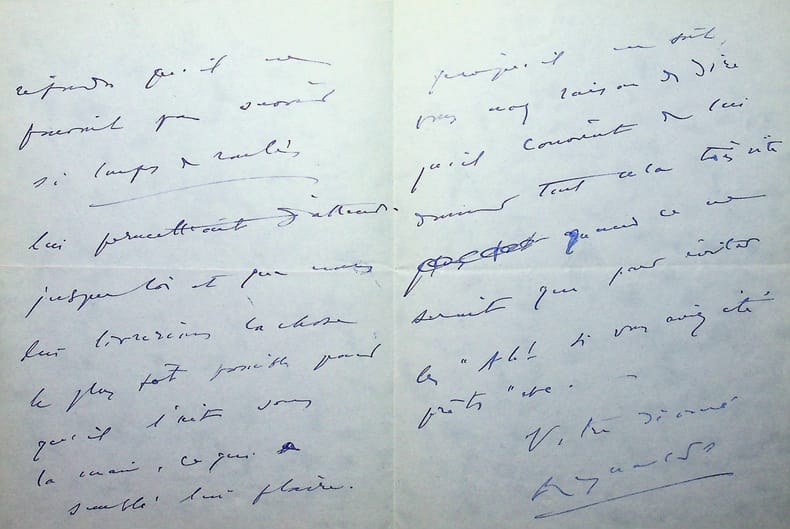 répondu qu'il ne
pouvait pas savoir
si
lui permettait d'attendre
jusque là et que nous
lui livrerions la chose
le plus tôt possible pour
qu'il l'ait sous
la main, ce qui
semblé lui plaire.
quoiqu'il en soit,
vous avez raison de dire
qu'il convient de lui
donner tout cela très vite
quand ce ne
serait que pour éviter
les "Ah! si vous aviez été
prêts" etc. –
Votre dévoué